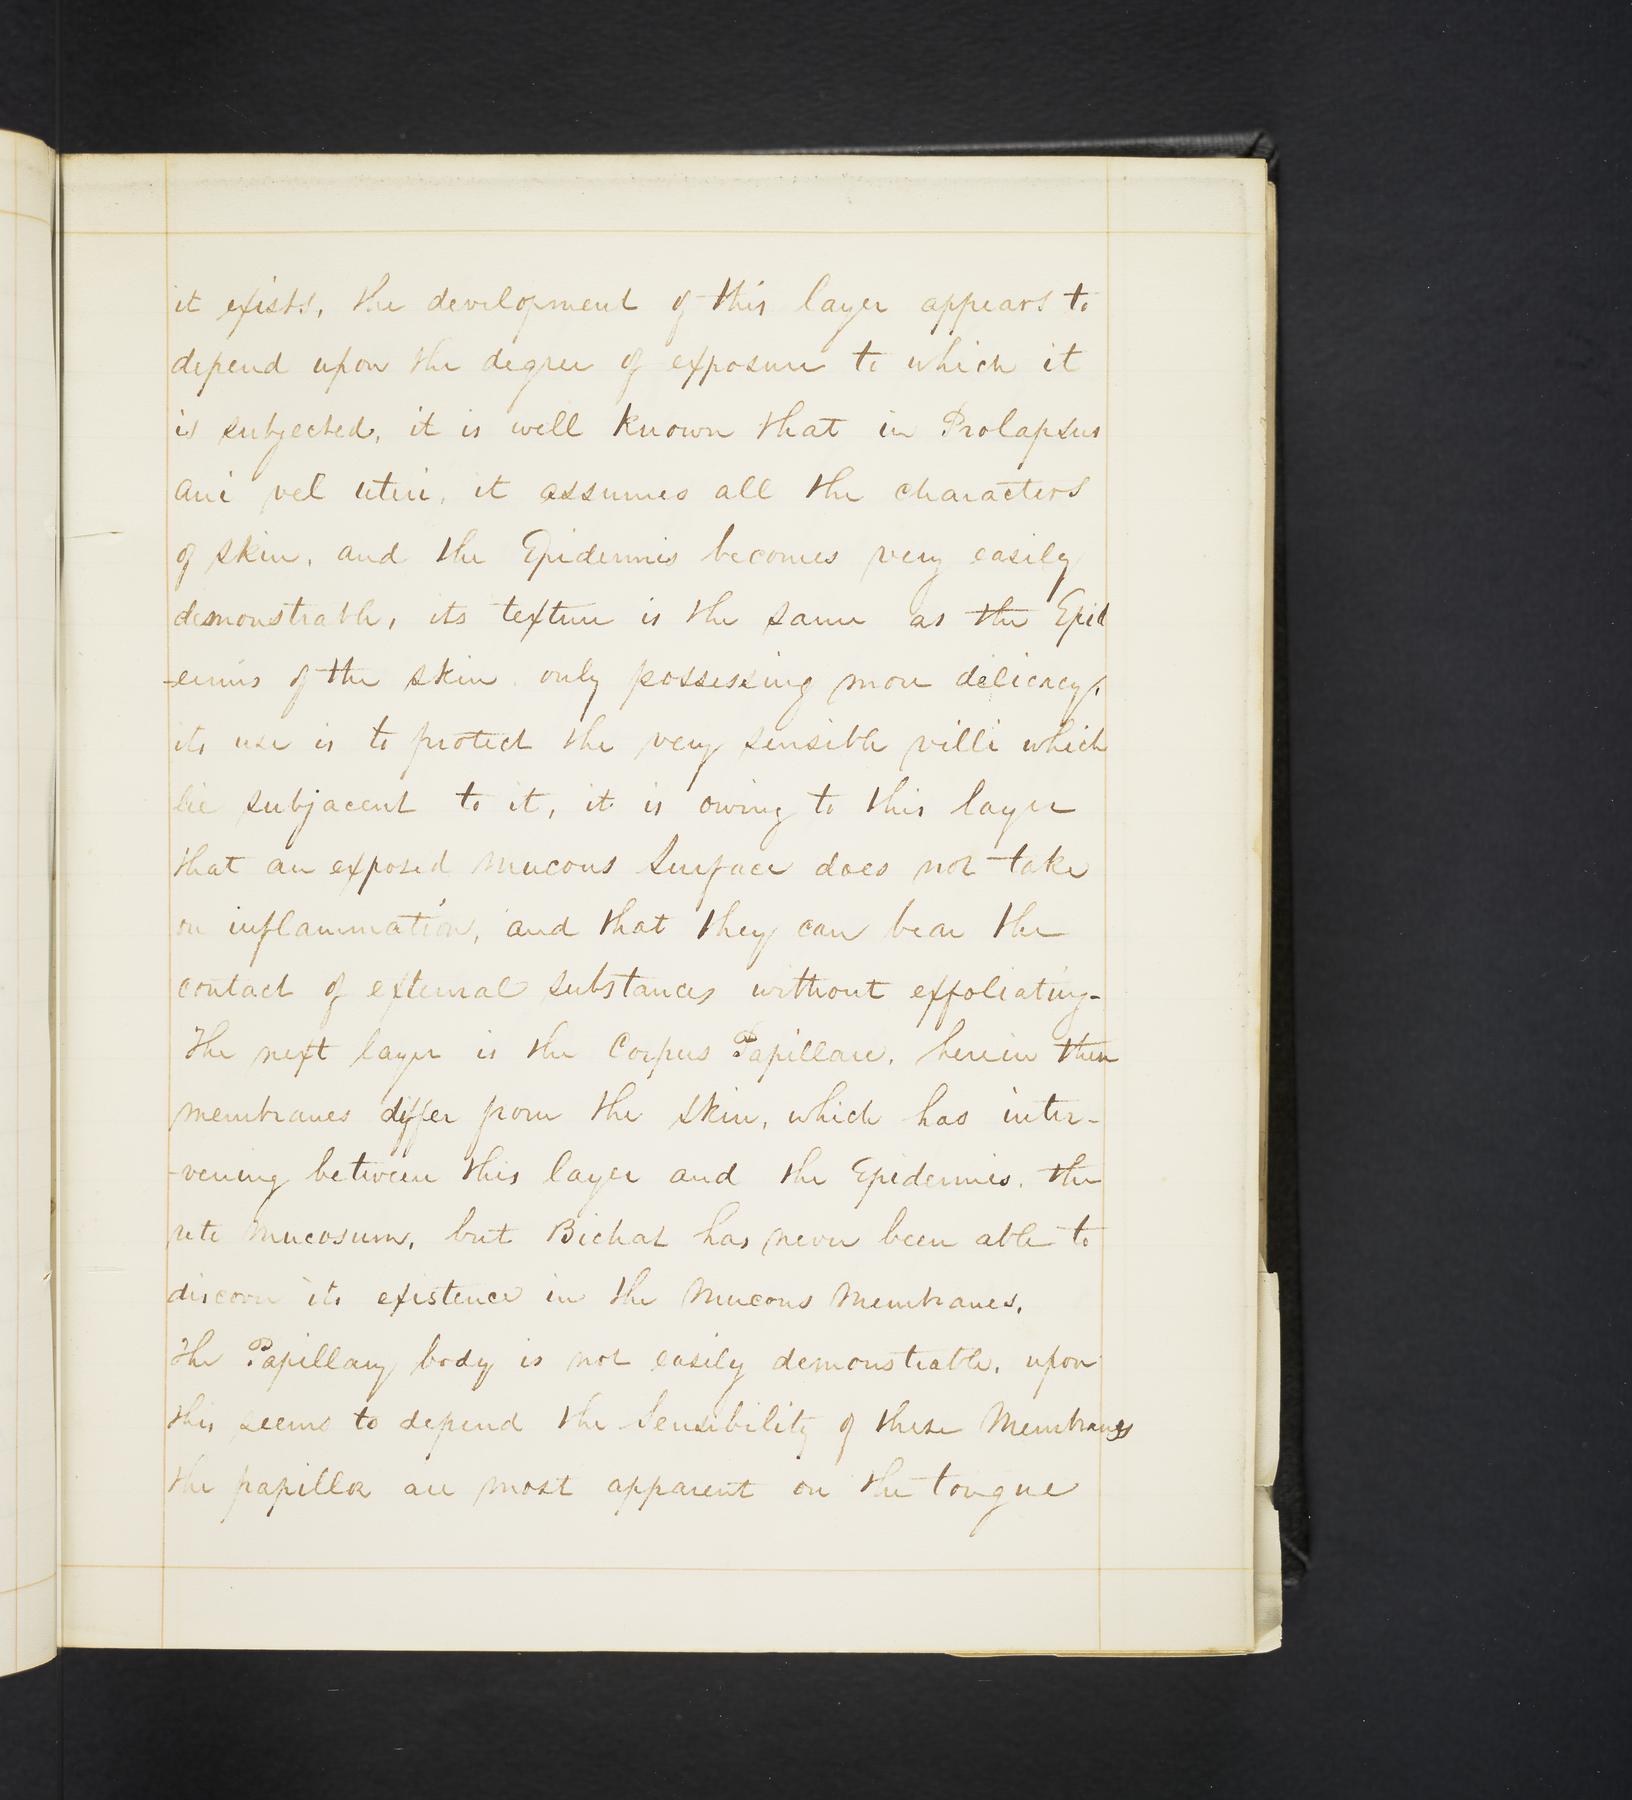 it exists, the development of this layer appears to
depend upon the degree of exposure to which it
is subjected, it is well known that in Prolapsus
ani vel uteri, it assumes all the characters
of skin, and the Epidermis becomes very easily
demonstrable, its texture is the same as the Epid
-ermis of the skin only possessing more delicacy,
its use is to protect the very sensible villi which
lie subjacent to it, it is owing to this layer
that an exposed mucous surface does not take
on inflammation, and that they can bear the
contact of external substances without exfoliating-
The next layer is the Corpus Papillare, herein these
membranes differ from the skin, which has inter-
-vening between this layer and the Epidermis, the
rete mucosum, but Bichat has never been able to
discover its existence in the Mucous Membranes.
The Papillary body is not easily demonstrable, upon
this seems to depend the Sensibility of these Membranes
the papillæ are most apparent on the tongue